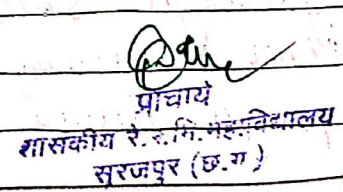 प्राचार्य
शासकीय रे. र. मि. महाविद्यालय
सूरजपुर (छ.ग.)